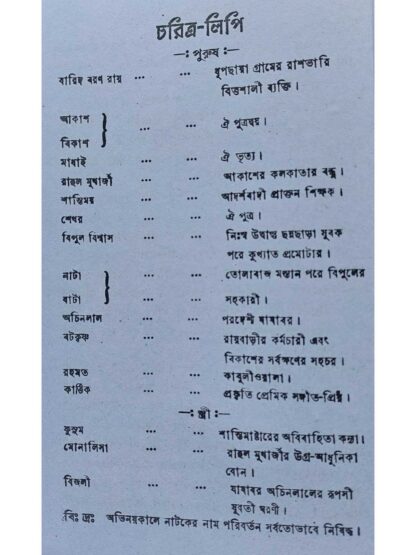 চরিত্র-লিপি
—: পুরুষ :—
বারিদ বরণ রায় ... ... ধূপছায়া গ্রামের রাশভারি
বিত্তশালী ব্যক্তি।
আকাশ
বিকাশ } ... ... ঐ পুত্রদ্বয়।
মাধাই ... ... ঐ ভৃত্য।
রাহুল মুখার্জী ... ... আকাশের কলকাতার বন্ধু।
শান্তিময় ... ... আদর্শবাদী প্রাক্তন শিক্ষক।
শেখর ... ... ঐ পুত্র।
বিপুল বিশ্বাস ... ... নিঃস্ব উদ্বাস্তু ছন্নছাড়া যুবক
পরে কুখ্যাত প্রমোটার।
নাটা ... ... তোলাবাজ মস্তান পরে বিপুলের
ঘাটা } ... ... সহকারী।
অচিনলাল ... ... পরদেশী যাযাবর।
বটকৃষ্ণ ... ... রায়বাড়ীর কর্মচারী এবং
বিকাশের সর্বক্ষণের সহচর।
রহমত ... ... কাবুলীওয়ালা।
কার্ত্তিক ... ... প্রকৃতি প্রেমিক সঙ্গীত-প্রিয়।
—: স্ত্রী :—
কুসুম ... ... শান্তিমাষ্টারের অবিবাহিতা কন্যা।
মোনালিসা ... ... রাহুল মুখার্জীর উগ্র-আধুনিকা
বোন।
বিজলী ... ... যাযাবর অচিনলালের রূপসী
যুবতী ঘরণী।
বিঃ দ্রঃ অভিনয়কালে নাটকের নাম পরিবর্তন সর্বতোভাবে নিষিদ্ধ।